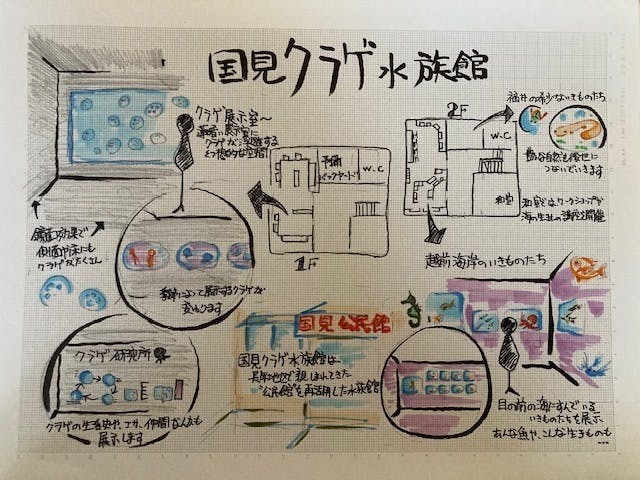 国見クラゲ水族館
クラゲ展示室～
薄暗い展示室に
クラゲが浮遊する
幻想的な空間
鏡面効果で
側面や床にも
クラゲがたくさん
季節によって展示するクラゲが
変わります
予備
バックヤード
W.C
1F
2F
W.C
和室
福井の希少ないきものたち
後世に
つないでいきます
和室ではワークショップや
海の生きもの講座を開催
越前海岸のいきものたち
クラゲ研究所
クラゲの生活史や、エサ、仲間なんかも
展示します
国見公民館
国見クラゲ水族館は、
長年地区で親しまれてきた
"公民館"を再活用した水族館
目の前の海にすんでいる
いきものたちを展示
あんな魚や、こんな生きものも
…